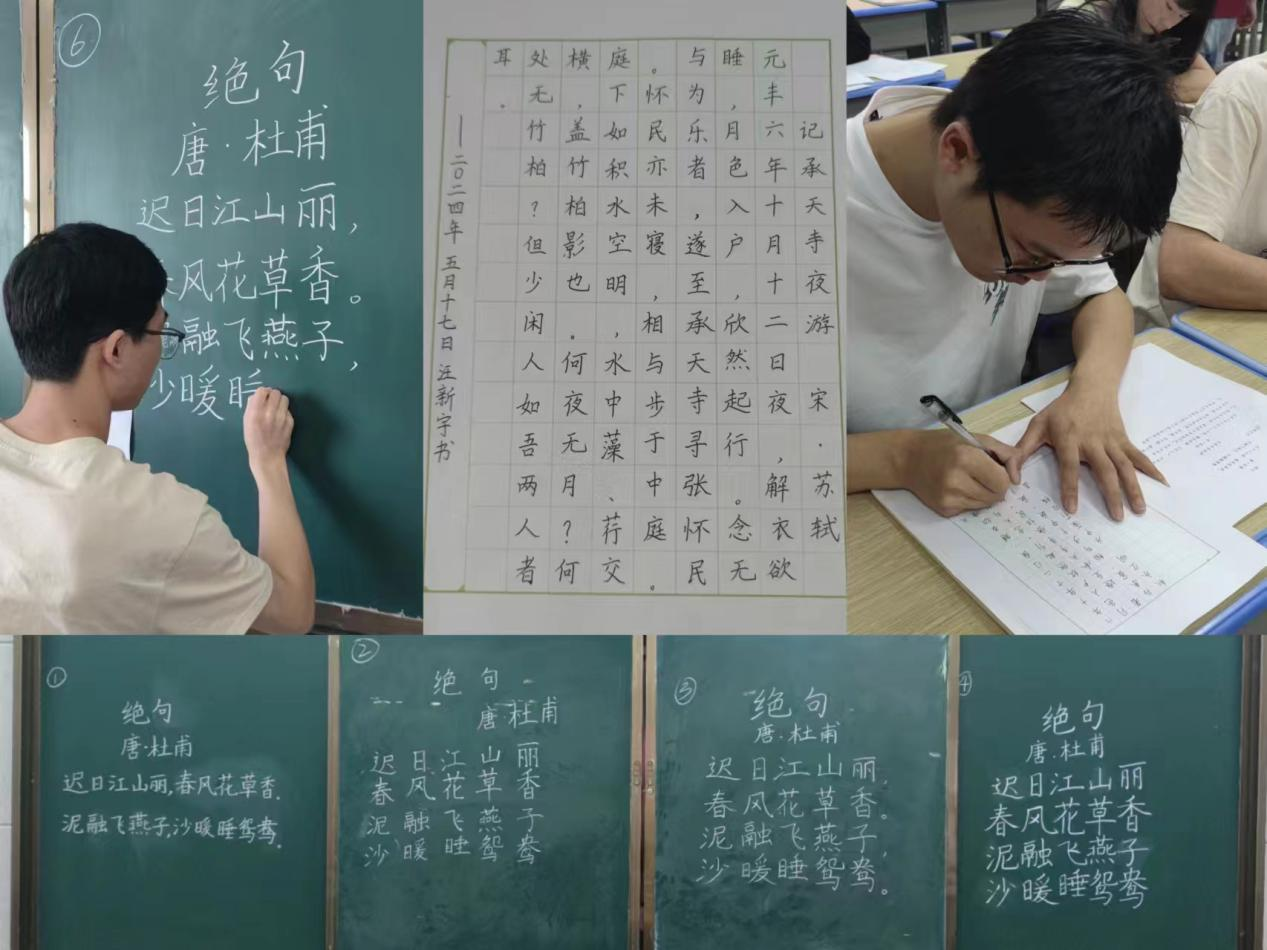 ⑥
绝句
唐·杜甫
迟日江山丽，
春风花草香。
融飞燕子，
沙暖睡
记承天寺夜游 宋·苏轼
元丰六年十月十二日夜，解衣欲
睡，月色入户，欣然起行。念无
与为乐者，遂至承天寺寻张怀民
。怀民亦未寝，相与步于中庭。
庭下如积水空明，水中藻、荇交
横，盖竹柏影也。何夜无月？何
处无竹柏？但少闲人如吾两人者
耳。
——二〇二四年五月十七日 汪新宇书
①
绝句
唐·杜甫
迟日江山丽,春风花草香.
泥融飞燕子,沙暖睡鸳鸯.
②
绝句
唐 杜甫
迟日江山丽
春风花草香
泥融飞燕子
沙暖睡鸳鸯
③
绝句
唐·杜甫
迟日江山丽,
春风花草香。
泥融飞燕子,
沙暖睡鸳鸯。
④
绝句
唐·杜甫
迟日江山丽
春风花草香
泥融飞燕子
沙暖睡鸳鸯